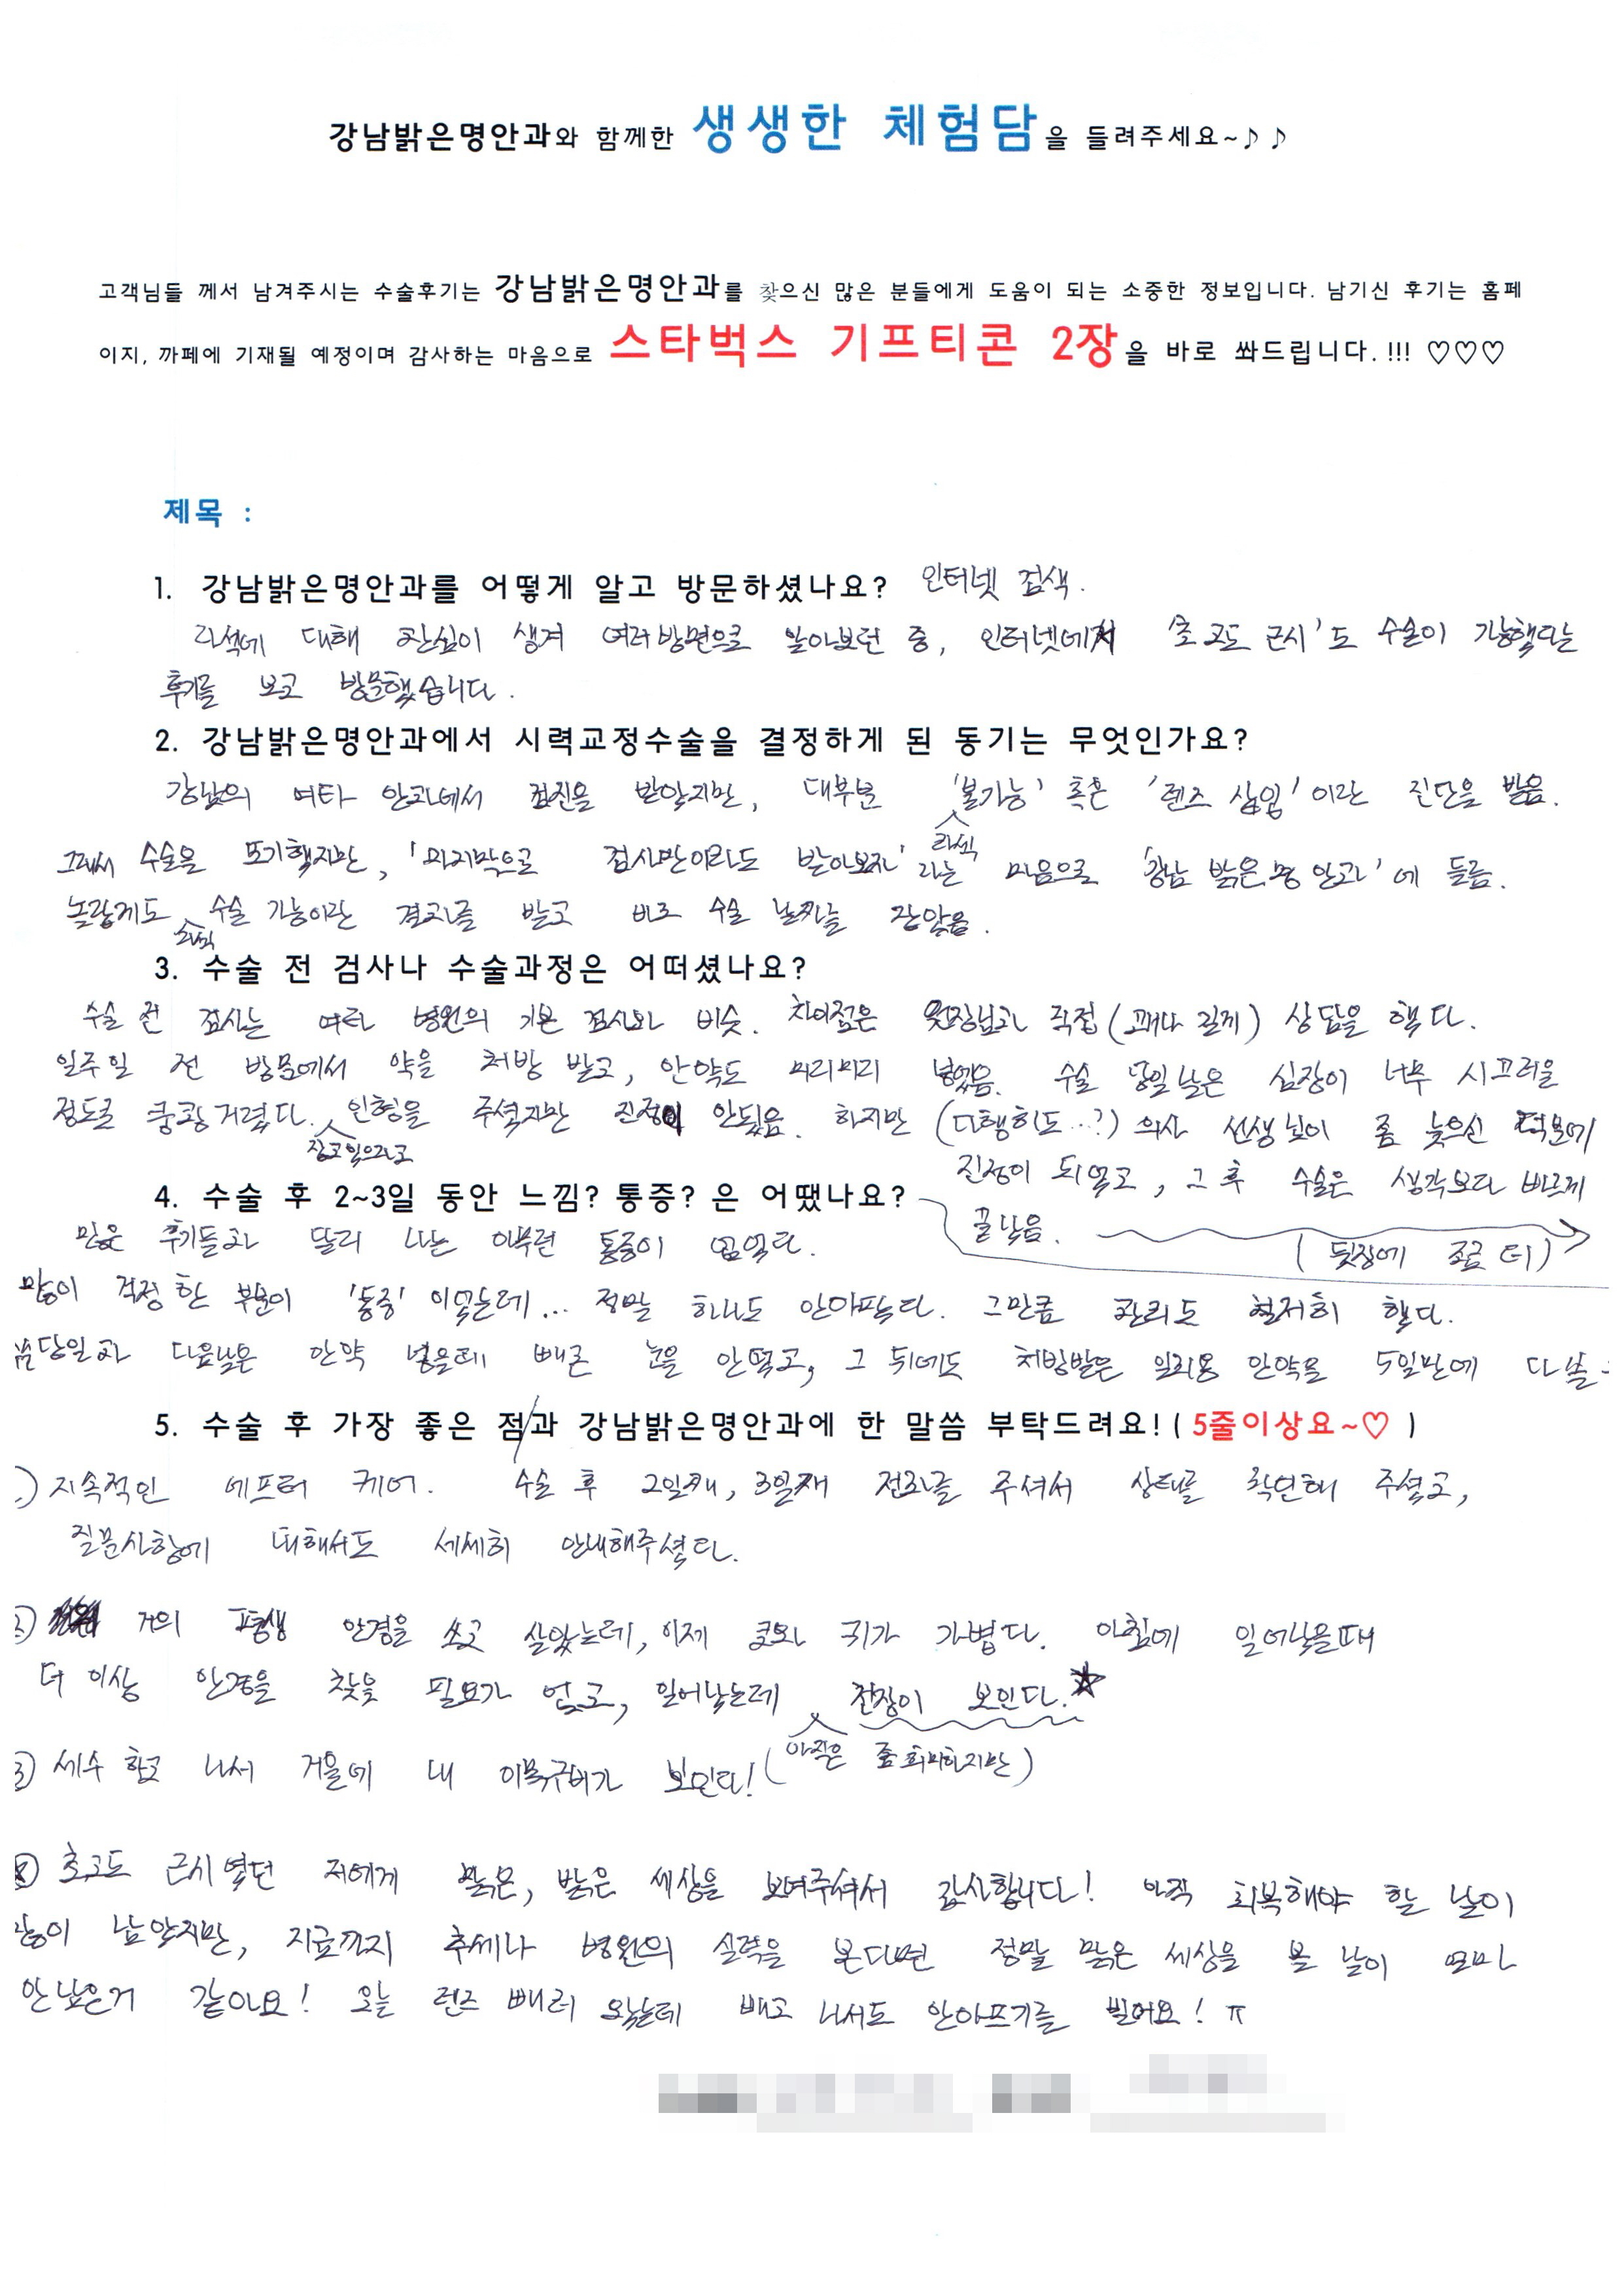 강남밝은명안과와 함께한 생생한 체험담을 들려주세요~♪♪
고객님들 께서 남겨주시는 수술후기는 강남밝은명안과를 찾으신 많은 분들에게 도움이 되는 소중한 정보입니다. 남기신 후기는 홈페
이지, 까페에 기재될 예정이며 감사하는 마음으로 스타벅스 기프티콘 2장을 바로 쏴드립니다.!!! ♡♡♡
제목 :
1. 강남밝은명안과를 어떻게 알고 방문하셨나요? 인터넷 검색.
라섹에 대해 관심이 생겨 여러방면으로 알아보던 중, 인터넷에서 '초고도 근시'도 수술이 가능했다는
후기를 보고 방문했습니다.
2. 강남밝은명안과에서 시력교정수술을 결정하게 된 동기는 무엇인가요?
강남의 여타 안과에서 검진을 받았지만, 대부분 '불가능' 혹은 '렌즈 삽입'이란 진단을 받음.
라섹
그래서 수술을 포기했지만, '마지막으로 검사만이라도 받아보자' 라는 마음으로 '강남 밝은 명 안과'에 들름.
놀랍게도 수술 가능이란 결과를 받고 바로 수술 날짜를 잡았음.
라섹
3. 수술 전 검사나 수술과정은 어떠셨나요?
수술 전 검사는 여타 병원의 기본 검사와 비슷. 차이점은 원장님과 직접 (꽤나 길게) 상담을 했다.
일주일 전 방문에서 약을 처방 받고, 안약도 미리미리 넣었음. 수술 당일 날은 심장이 너무 시끄러울
정도로 쿵쾅거렸다. 인형을 주셨지만 진정이 안됐음. 하지만 (다행히도...?) 의사 선생님이 좀 늦으신 덕분에
잡고있으라고
진정이 되었고, 그 후 수술은 생각보다 빠르게
4. 수술 후 2~3일 동안 느낌? 통증? 은 어땠나요?
끝났음.
(뒷장에 조금 더)
많은 후기들과 달리 나는 아무런 통증이 없었다.
많이 걱정한 부분이 '통증'이었는데... 정말 하나도 안아팠다. 그만큼 관리도 철저히 했다.
당일과 다음날은 안약 넣을때 빼곤 눈을 안떴고, 그 뒤에도 처방받은 일회용 안약을 5일만에 다 쓸
5. 수술 후 가장 좋은 점/과 강남밝은명안과에 한 말씀 부탁드려요!( 5줄이상요~♡ )
) 지속적인 에프터 케어. 수술 후 2일째, 3일째 전화를 주셔서 상태를 확인해 주셨고,
질문사항에 대해서도 세세히 안내해주셨다.
) 거의 평생 안경을 쓰고 살았는데, 이제 코와 귀가 가볍다. 아침에 일어났을때
더 이상 안경을 찾을 필요가 없고, 일어났는데 천장이 보인다.★
(아직은 좀 희미하지만)
3) 세수 하고 나서 거울에 내 이목구비가 보인다!
초고도 근시였던 저에게 맑은, 밝은 세상을 보여주셔서 감사합니다! 아직 회복해야 할 날이
많이 남았지만, 지금까지 추세나 병원의 실력을 본다면 정말 맑은 세상을 볼 날이 얼마
안남은거 같아요! 오늘 렌즈 빼러 왔는데 빼고 나서도 안아프기를 빌어요! ㅠ